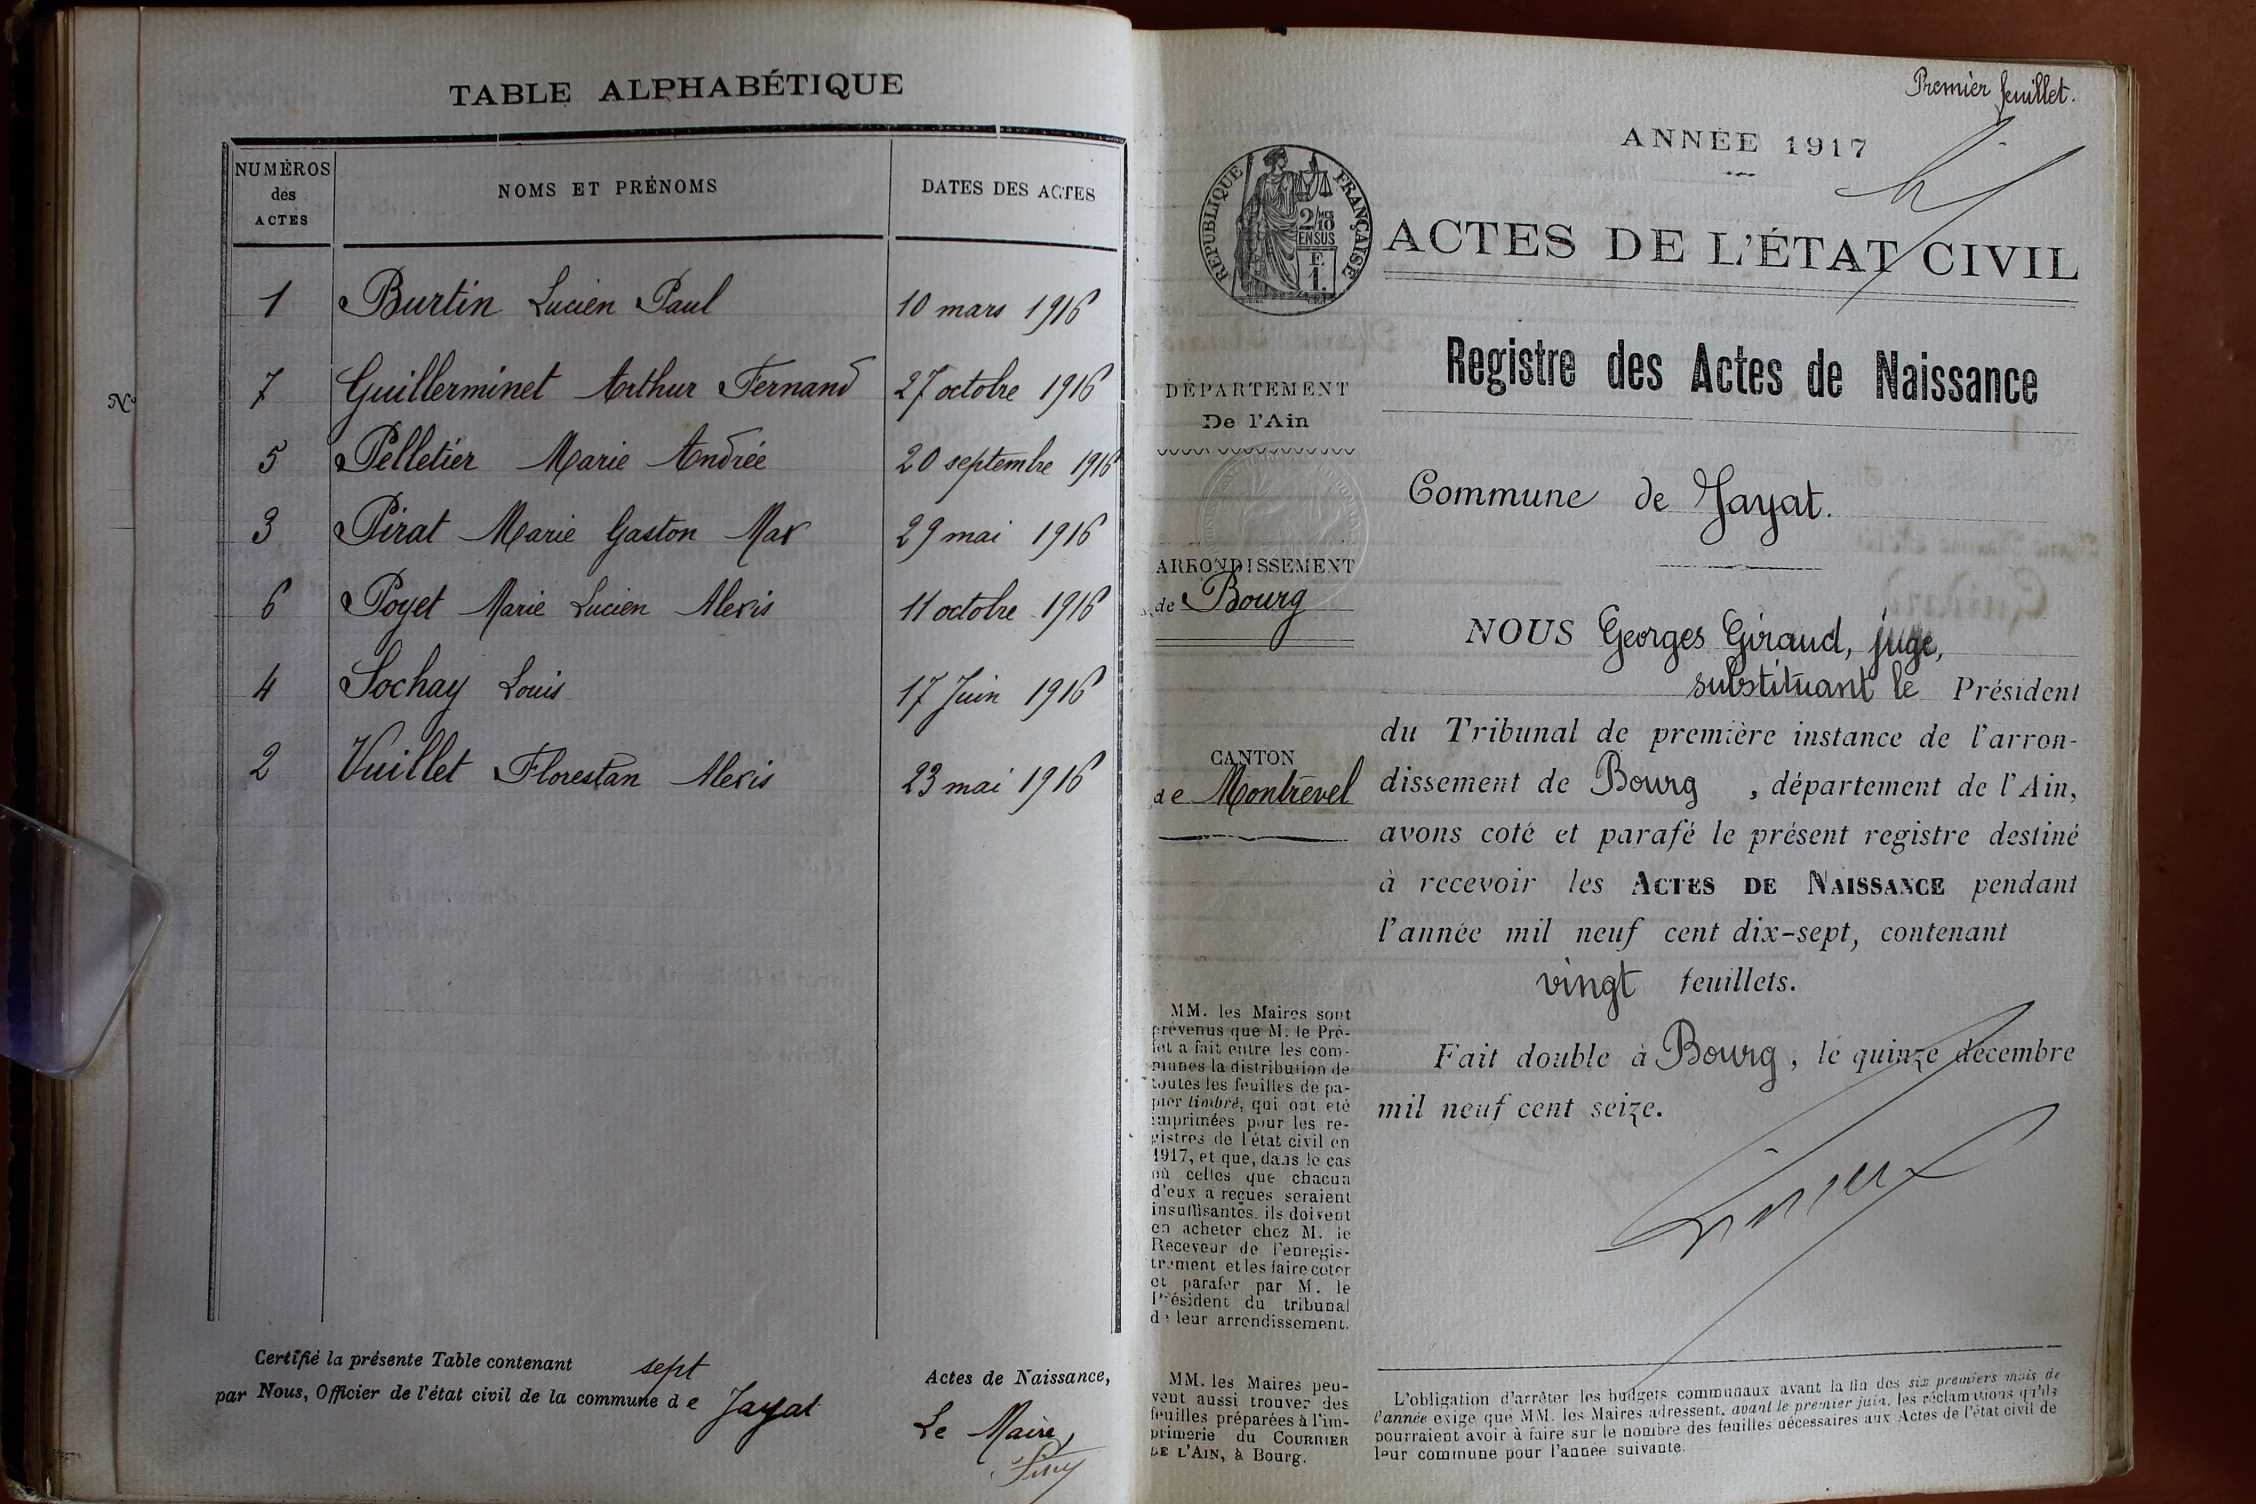 TABLE ALPHABÉTIQUE
NUMÉROS des ACTES
NOMS ET PRÉNOMS
DATES DES ACTES
1 Burtin Lucien Paul 10 mars 1916
7 Guillerminet Arthur Fernand 27 octobre 1916
5 Pelletier Marie Andrée 20 septembre 1916
3 Pirat Marie Gaston Max 29 mai 1916
6 Poyet Marie Lucien Alexis 11 octobre 1916
4 Sochay Louis 17 Juin 1916
2 Vuillet Florestan Alexis 23 mai 1916
Certifié la présente Table contenant sept Actes de Naissance,
par Nous, Officier de l'état civil de la commune de Jayat
Le Maire,
No
Premier feuillet.
ANNÉE 1917
RÉPUBLIQUE FRANÇAISE
2/10 MES
EN SUS
F.
1.
ACTES DE L'ÉTAT CIVIL
Registre des Actes de Naissance
DÉPARTEMENT
De l'Ain
Commune de Jayat.
ARRONDISSEMENT
de Bourg
CANTON
de Montrevel
NOUS Georges Giraud, juge,
substituant le Président
du Tribunal de première instance de l'arron-
dissement de Bourg, département de l'Ain,
avons coté et parafé le présent registre destiné
à recevoir les ACTES DE NAISSANCE pendant
l'année mil neuf cent dix-sept, contenant
vingt feuillets.
Fait double à Bourg, le quinze décembre
mil neuf cent seize.
MM. les Maires sont
prévenus que M. le Pré-
fet a fait entre les com-
munes la distribution de
toutes les feuilles de pa-
pier timbré, qui ont été
imprimées pour les re-
gistres de l'état civil en
1917, et que, dans le cas
où celles que chacun
d'eux a reçues seraient
insuffisantes, ils doivent
en acheter chez M. le
Receveur de l'enregis-
trement et les faire coter
et parafer par M. le
Président du tribunal
de leur arrondissement.
MM. les Maires peu-
vent aussi trouver des
feuilles préparées à l'im-
primerie du COURRIER
DE L'AIN, à Bourg.
L'obligation d'arrêter les budgets communaux avant la fin des six premiers mois de
l'année exige que MM. les Maires adressent, avant le premier juin, les réclamations qu'ils
pourraient avoir à faire sur le nombre des feuilles nécessaires aux Actes de l'état civil de
leur commune pour l'année suivante.